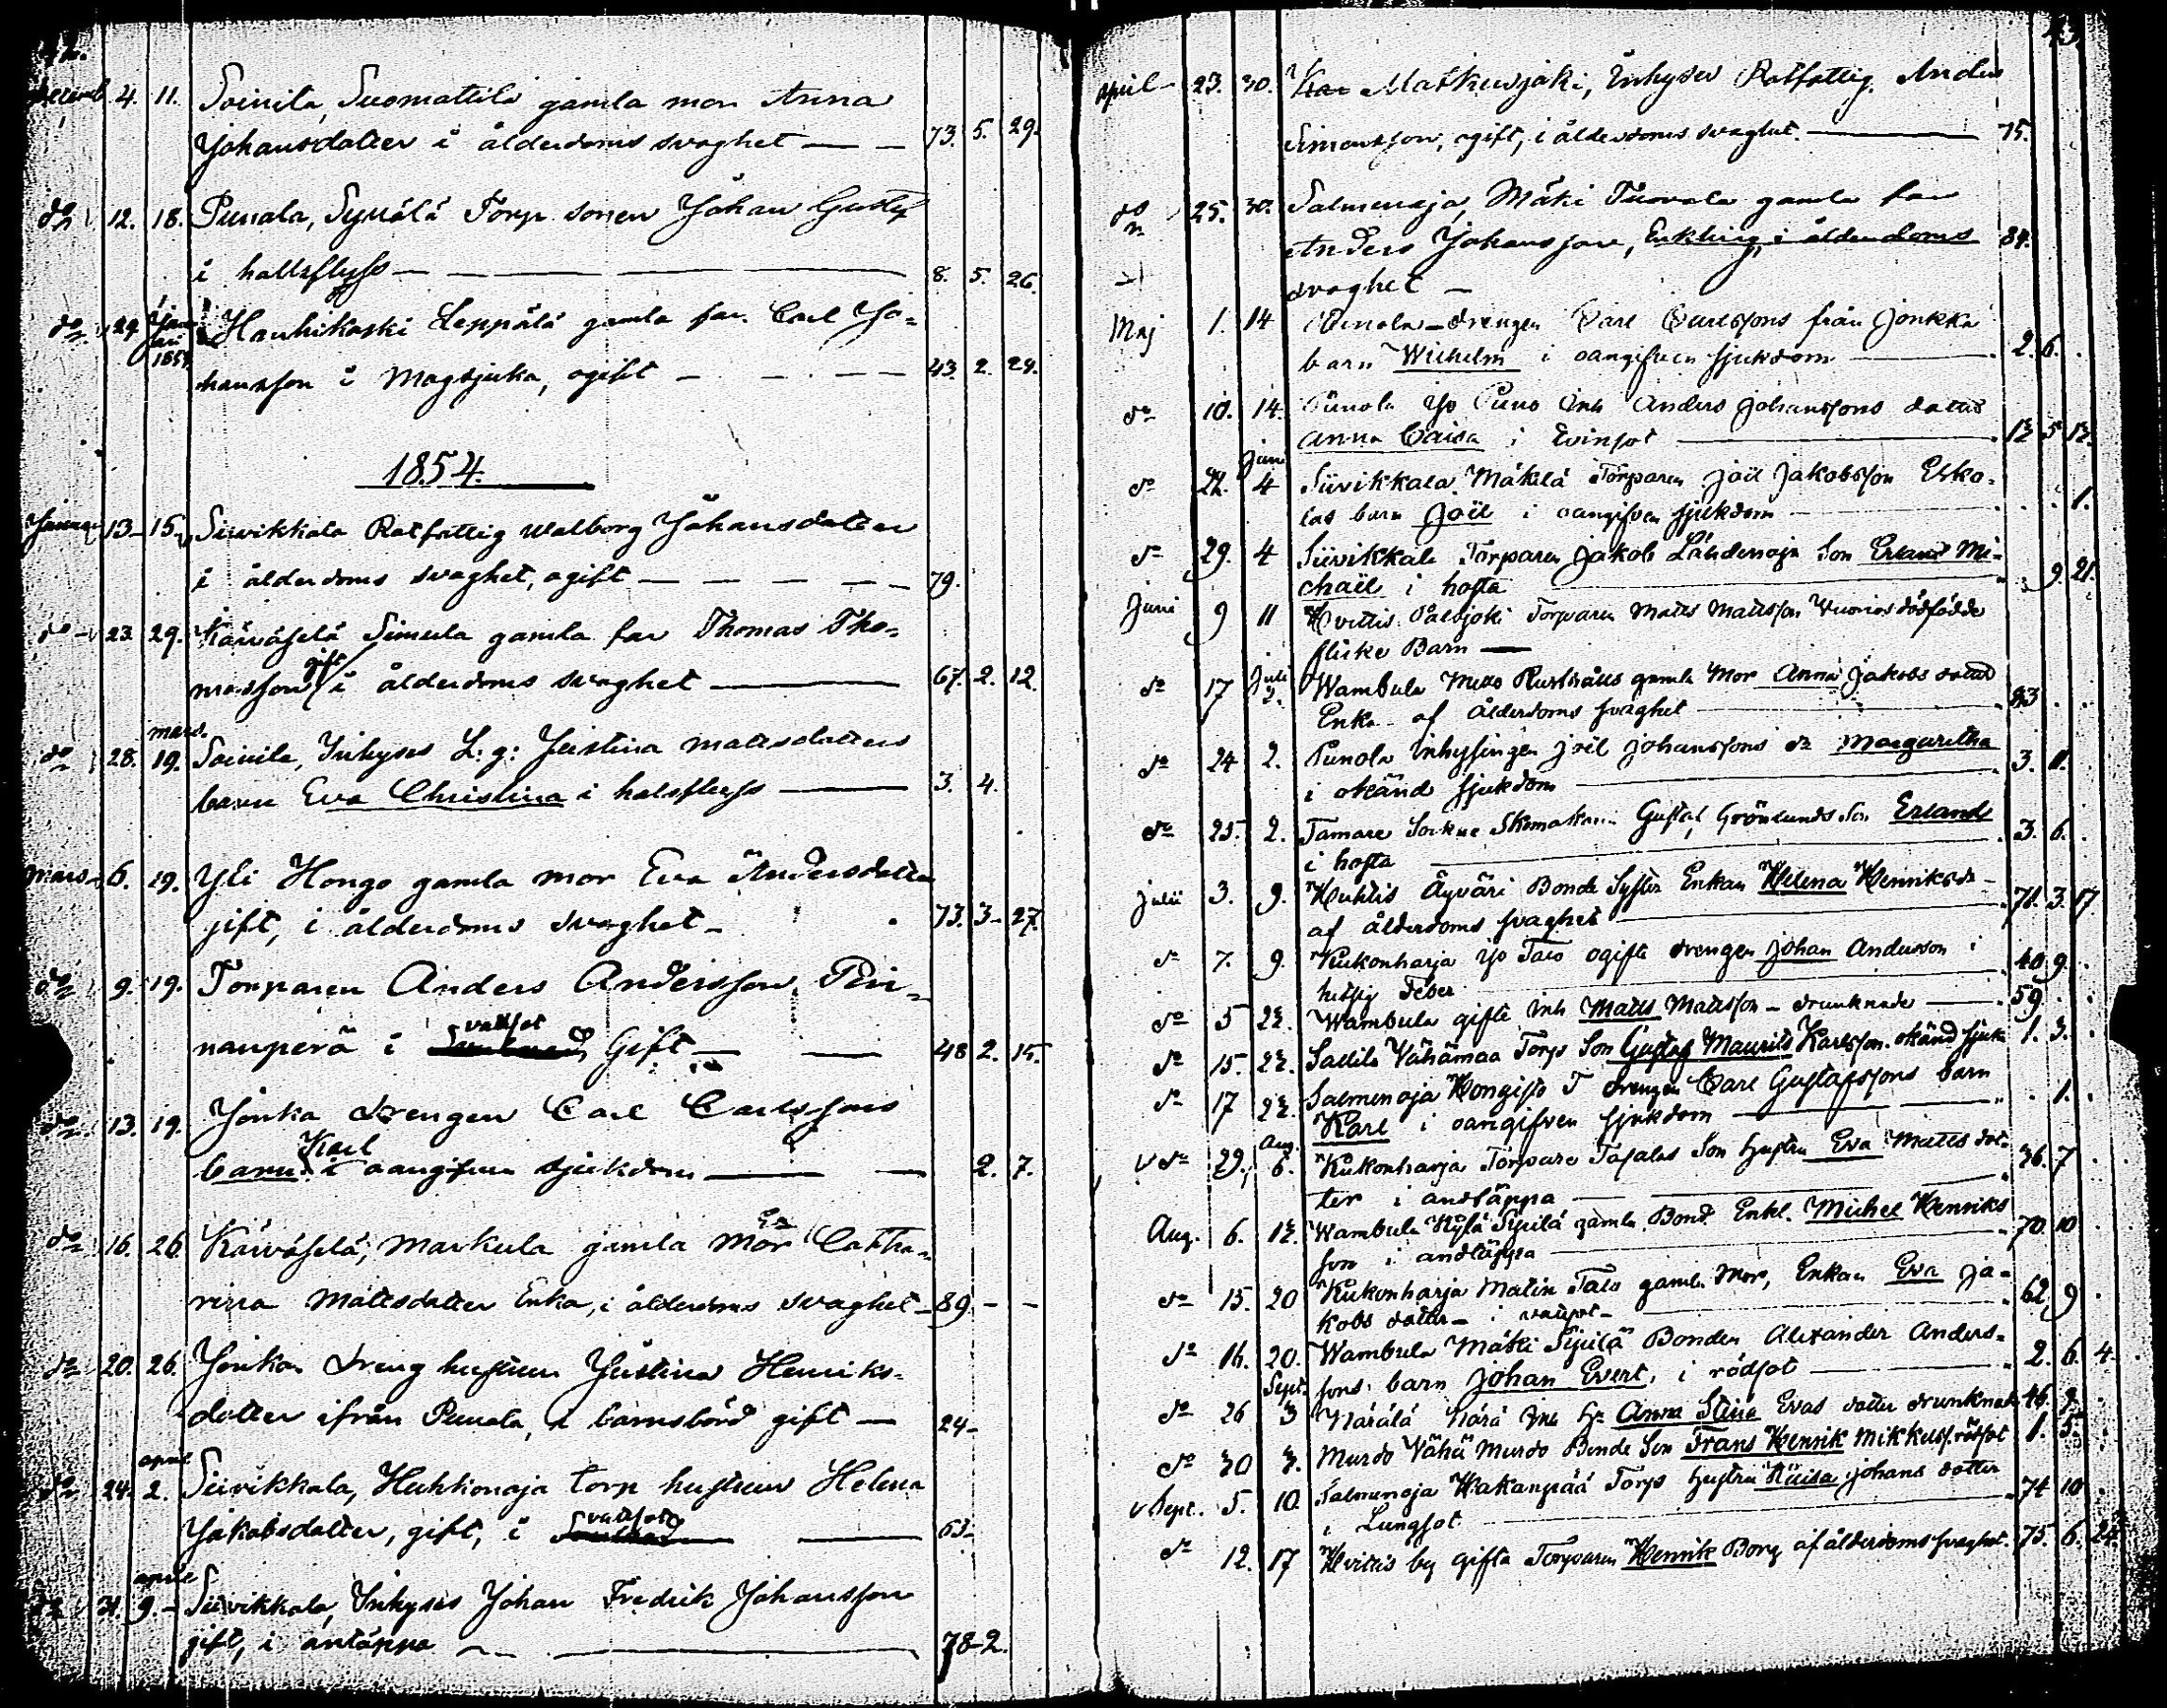 Decemb 4. 11. Soinila, Suomattila gamla mor Anna
Johansdotter i ålderdoms svaghet — — 73. 5. 29.
do 12. 18. Punola, Torp sonen Johan Gustaf
i halsflyss — 8. 5. 26.
do 29 Januari 1854 Hauhikoski Leppälä gamla far Carl Jo-
hansson i Magsjuka, ogift — 43. 2. 24.
1854.
Januari 13 15 Siivikkala Rotfattig Walborg Johansdotter
i ålderdoms svaghet, ogift — 79.
do 23 29. Karwäselä Simula gamla far Thomas Tho-
masson gift i ålderdoms svaghet — 67. 2. 12
mars
do 28. 19. Soinila, Inhyses L: g: Justina Mattsdotters
barn Eva Christina i halsflyss — 3. 4.
Mars 6. 19. Yli Hongo gamla mor Eva Andersdotter
gift, i ålderdoms svaghet — 73. 3 27.
do 9. 19. Torparen Anders Andersson Pin-
nanperä i vattsot Gift — 48 2. 15.
do 13. 19. Jonka drengen Carl Carlssons
barn Karl i oangifven sjukdom — 2. 7.
do 16. 26. Karwäselä, Markula gamla mor Catha-
rina Mattsdotter Enka, i ålderdoms svaghet — 89 – –
do 20. 26. Jonka Dreng hustrun Justina Henriks-
dotter ifrån Punola, i barnsbörd gift — 24
april
do 24. 2. Siivikkala, Huhkonoja torp hustrun Helena
Jakobsdotter, gift, i vattsot — 63
april
do 31. 9. Siivikkala, Inhyses Johan Fredrik Johansson
gift, i antäppa — 78 2.
april 23. 30. Matkusjoki, Inhyses Rotfattig Anders
Simonsson, gift, i ålderdoms svaghet. — 75.
do 25. 30. Salmenoja, Mäki Tuovola gamla far
Anders Johansson, Enkling, i ålderdoms 84.
svaghet —
Maj 1. 14 Punola drengen Carl Carlssons från Jonkka
barn Wilhelm i oangifven sjukdom — 2. 6.
do 10. 14. Punola Yo Puno Inh Anders Johanssons dotter
Anna Caisa i Tvinsot — 12 5 12.
Juni
do 22. 4 Siivikkala Mäkelä Torparen Joel Jakobsson Erko-
las barn Joël i oangifven sjukdom — 1.
do 29. 4 Siivikkala Torparen Jakob Lähdenoja Son Erland Mi-
chaël i hosta — 9 21.
Juni 9 11 Hvittis Torparen Matts Mattsson Wuorios dödfödde
flicke Barn —
do 17 Juli 2. Wambula Rusthålls gamla Mor Anna Jakobs dotter
Enka af ålderdoms svaghet — 83
do 24 2. Punola Inhysingen Joël Johanssons dr Margaretha
i okänd sjukdom — 3. 11.
do 25. 2. Tamare Sockne Skomakaren Gustaf Grönlunds Son Erland
i hosta — 3. 6.
Julii 3. 9. Huhtis Äyväri Bonde Syster Enkan Helena Henriksdr
af ålderdoms svaghet — 78. 3. 17.
do 7. 9. Kukonharja Yo Talo ogifte drengen Johan Andersson i
hetsig Feber — 40 9
do 5 22. Wambula gifte Inh Matts Mattsson – drunknade — 59
do 15. 22. Sallila Vähämaa Torps Son Gustaf Maurits Karlsson okänd sjuk 1. 3.
do 17 22. Salmenoja Hongisto T drengen Carl Gustafssons barn
Karl i oangifven sjukdom — 1.
Aug.
do 29. 6. Kukonharja Torpare Tasalas Son hustru Eva Matts dot-
ter i andtäppa — 36. 7
Aug. 6. 12. Wambula Kylä Sipilä gamla Bond Enkl. Michel Henriks
son i andtäppa — 70 10
do 15. 20 Kukonharja Matin Talo gamla Mor, Enkan Eva Ja-
kobs dotter – i – 62. 9
do 16. 20. Wambula Mäkki Sipilä Bonden Alexander Anders-
sons barn Johan Evert, i rödsot — 2. 6. 4
Sept.
do 26 3 Kärälä Inh h Anna Stina Evas dotter drunknat 46. 9.
do 30 3. Murdo Vähä Murdo Bonde Son Frans Henrik Mikkelss. rödsot 1. 5.
Sept. 5. 10 Salmenoja Hakanpää Torps hustru Kaisa Johans dotter
i Lungsot — 74 10
do 12. 17 Hvittis by gifta Torparen Henrik Borg af ålderdoms svaghet. 75. 6. 24.